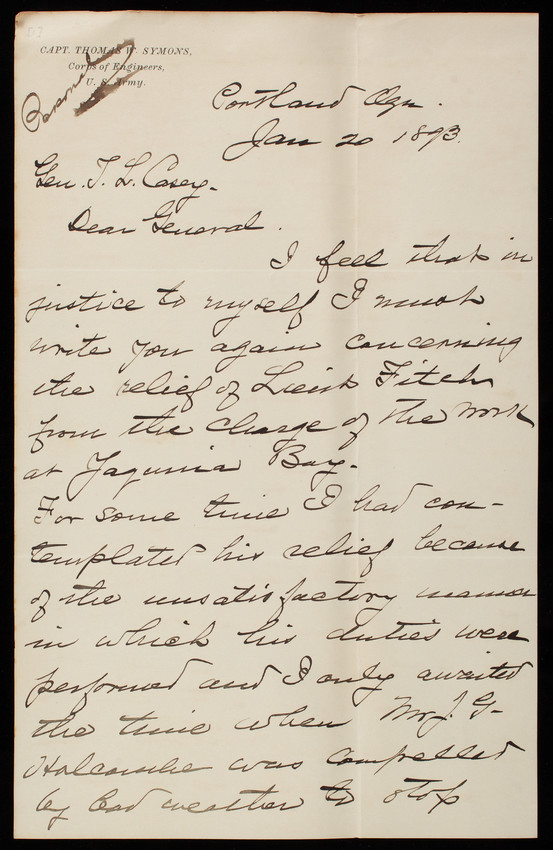 CAPT. THOMAS W. SYMONS,
Corps of Engineers,
U. S. Army.
Personal
Portland Ogn.
Jan 20 1893.
Gen. T. L. Casey.
Dear General.
I feel that in
justice to myself I must
write you again concerning
the relief of Lieut Fitch
from the charge of the work
at Yaquina Bay.
For some time I had con-
templated his relief because
of the unsatisfactory manner
in which his duties were
performed and I only awaited
the time when Mr J. G.
Holcombe was compelled
by bad weather to stop